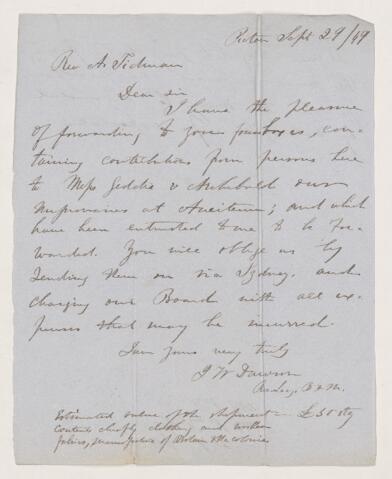 Pictou Sept 29/49
Rev A. Tidman
Dear sir
I have the pleasure
of forwarding to you four boxes, con-
taining contributions from persons here
to Mess Geddie & Archibald our
Missionaries at Aneiteum; and which
have been entrusted to me to be for-
warded. You will oblige us by
sending them on via Sydney and
charging our Board with all ex-
penses that may be incurred.
I am yours very truly
J W Dawson
Estimated value of the shipment £50 stg
Contents chiefly clothing and woollen
fabrics, manufacture of